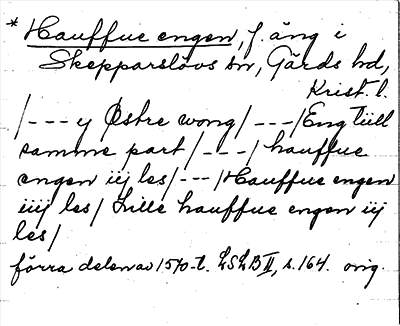 * Hauffue engen, f. äng i
Skepparslövs sn, Gärds hd,
Krist. l.
/--- y Østre wong/---/Eng tiill
samme part/---/hauffue
engen iij les/---/Hauffue engen
iiij les/ Lille hauffue engen iij
les/
förra delen av 1570-t. LSLB II, s. 164. orig.